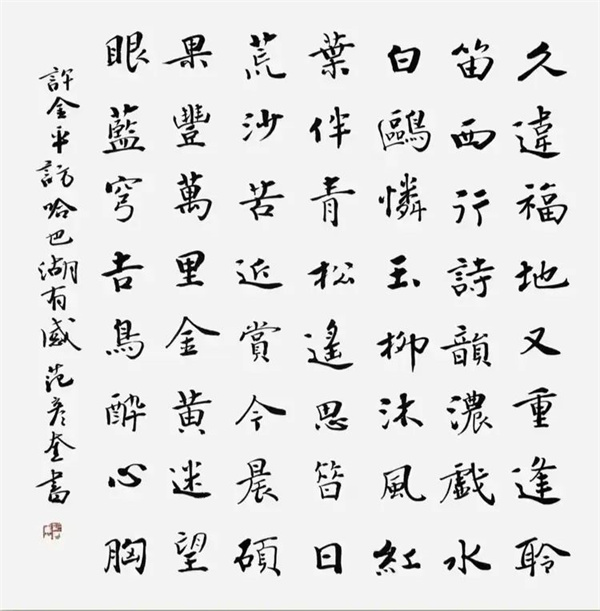 久違福地又重逢聆
笛西行詩韻濃戲水
白鷗憐玉柳沐風紅
葉伴青松遙思昔日
荒沙苦近賞今晨碩
果豐萬里金黃迷望
眼藍穹吉鳥醉心胸
許金平訪哈巴湖有感 范彥奎書